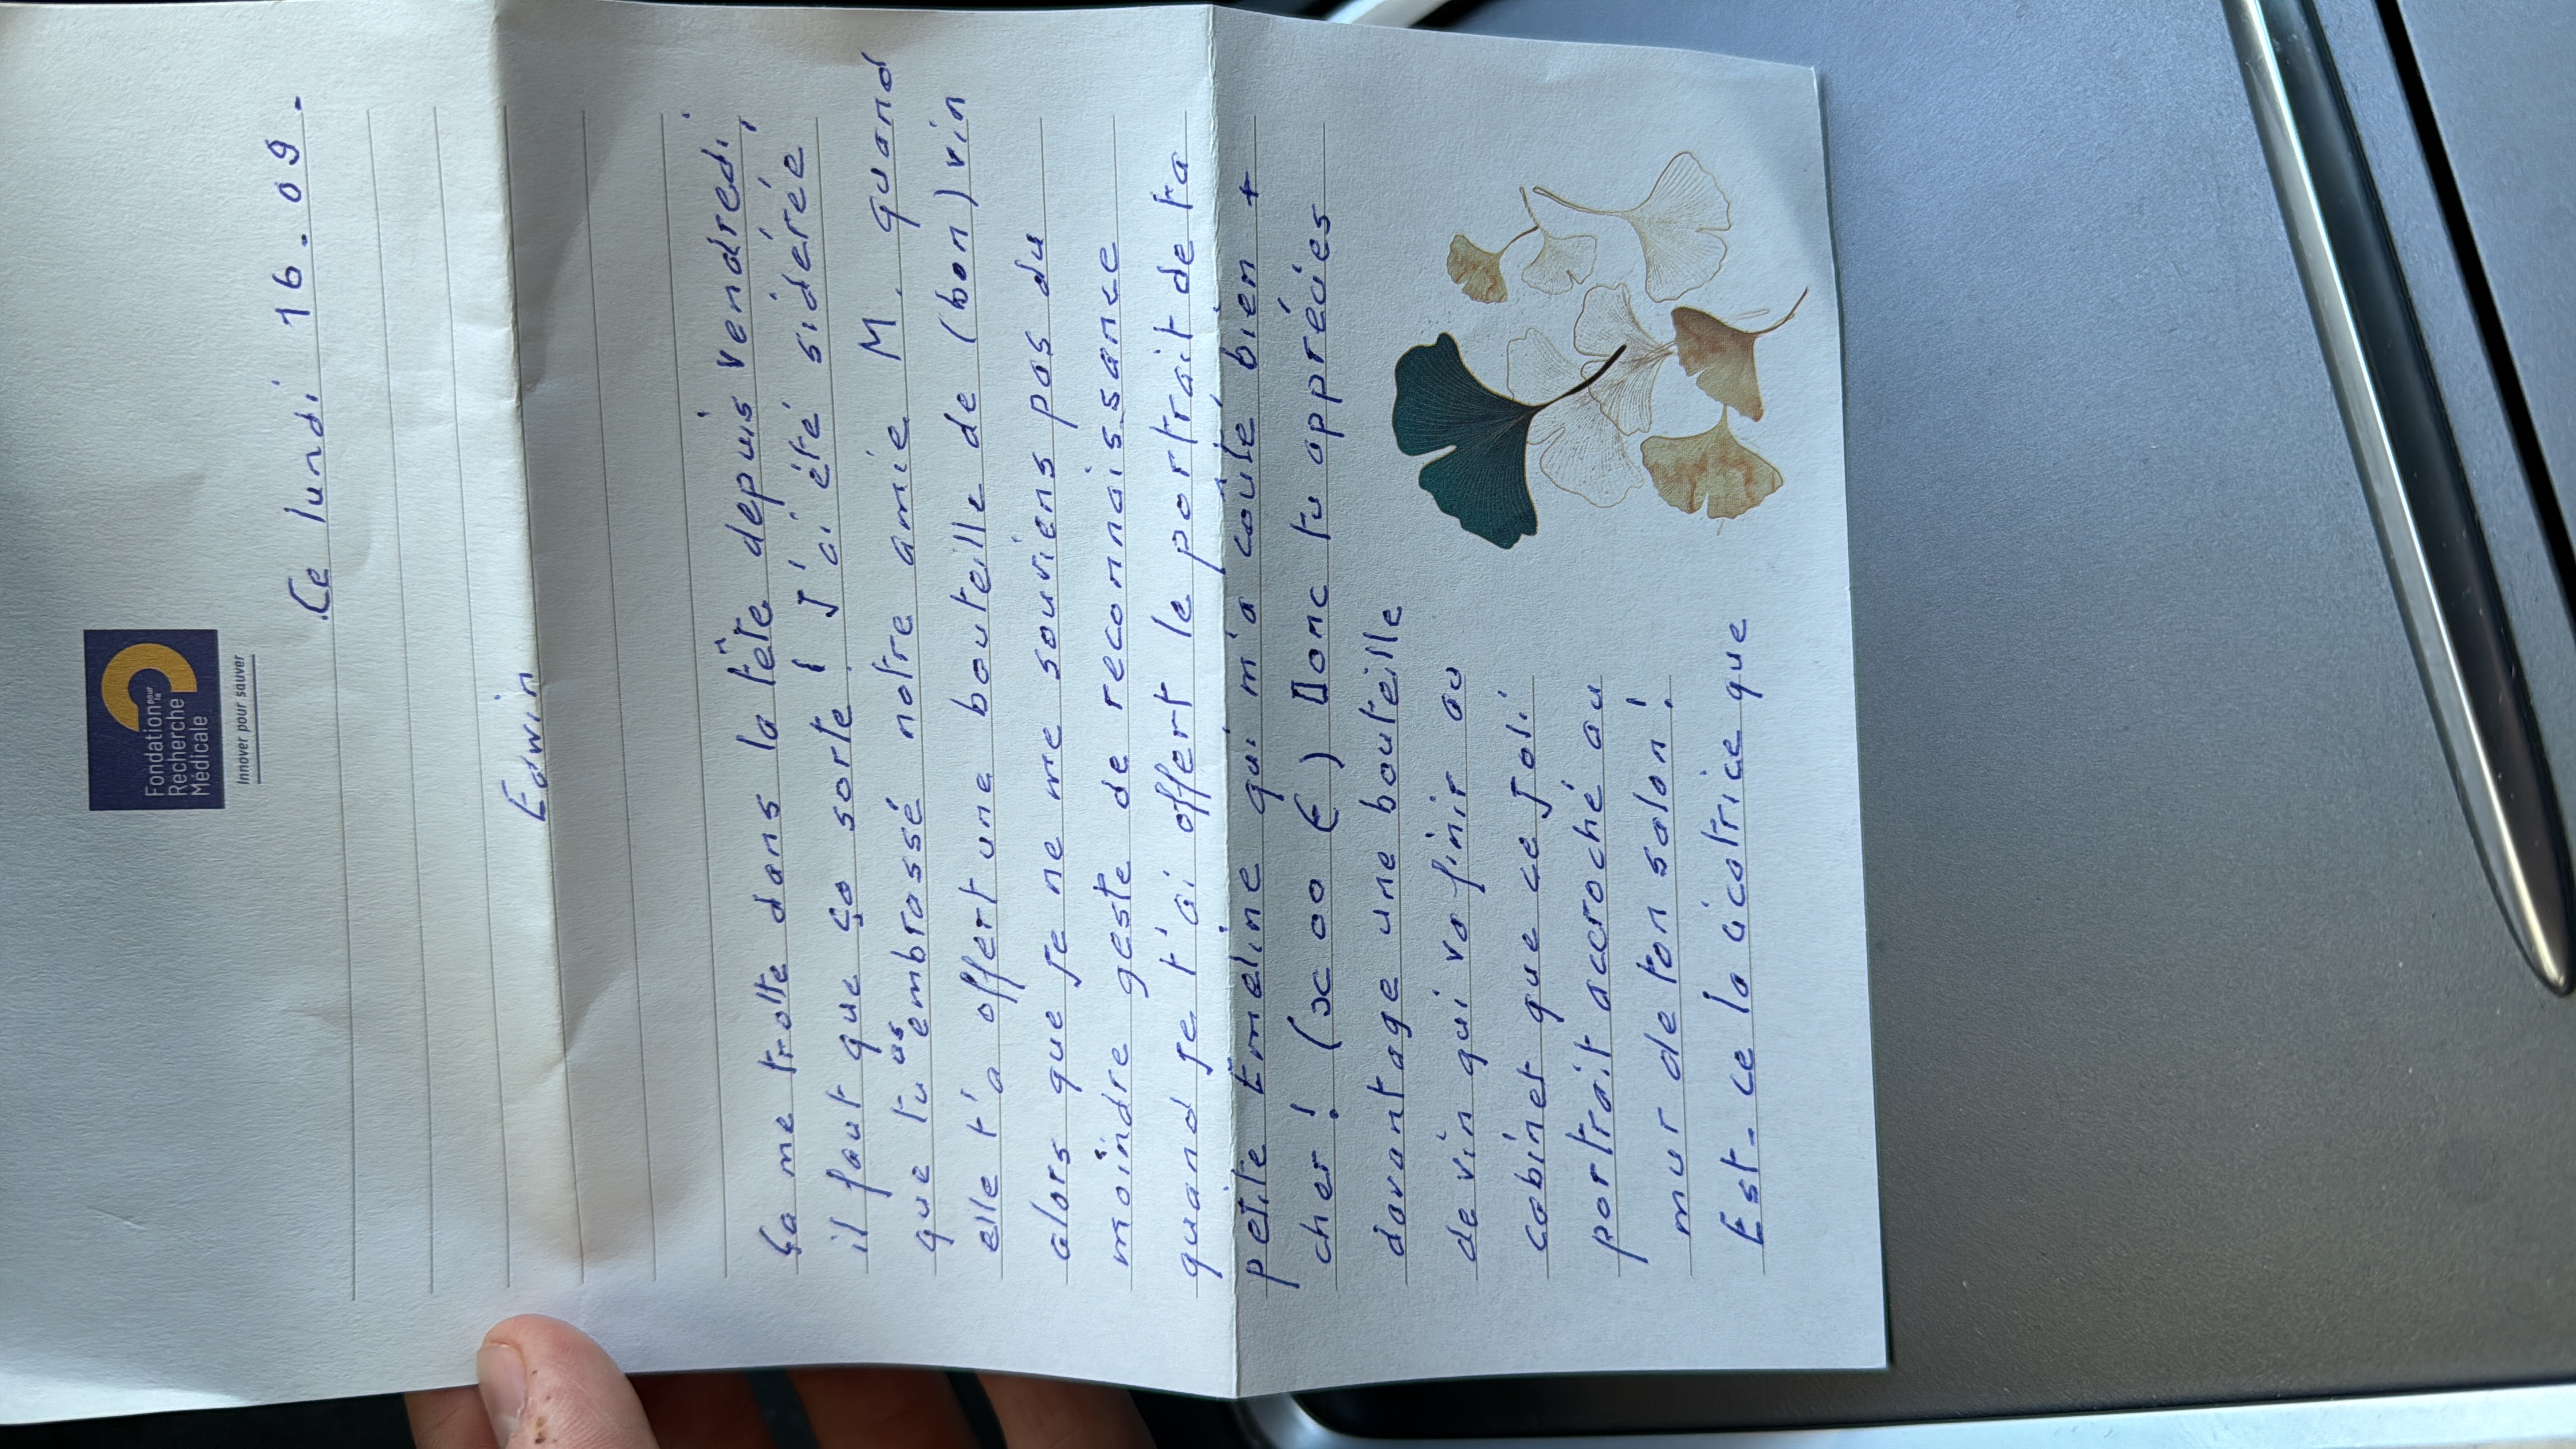 Fondation pour la
Recherche
Médicale
Innover pour sauver
Ce lundi 16.09.
Edwin
Ça me trotte dans la tête depuis vendredi,
il faut que ça sorte ! J'ai été sidérée
que tu as embrassé notre amie M. quand
elle t'a offert une bouteille de (bon) vin
alors que je ne me souviens pas du
moindre geste de reconnaissance
quand je t'ai offert le portrait de ta
petite Emeline qui m'a coûté, bien +
cher ! (x00 €) Donc tu apprécies
davantage une bouteille
de vin qui va finir au
cabinet que ce joli
portrait accroché au
mur de ton salon !
Est-ce la cicatrice que